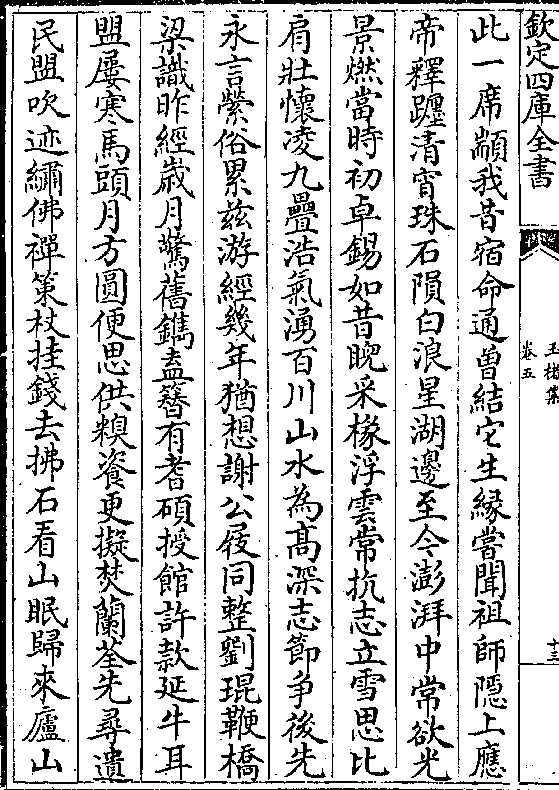 欽定四庫全書
玉楮集
卷五
十三
此一席顓我昔宿命通曽結它生縁嘗聞祖師隱上應
帝釋躔清宵珠石隕白浪星湖邊至今澎湃中常欲光
景燃當時初卓錫如昔睨采椽浮雲常抗志立雪思比
肩壯懷凌九疊浩氣湧百川山水為髙深志節争後先
永言縈俗累兹游經幾年猶想謝公屐同整劉琨鞭橋
梁識昨經歳月驚舊鐫盍簪有耆碩授館許款延牛耳
盟屢寒馬頭月方圓便思供糗餈更擬焚蘭荃先尋遺
民盟吹迹繡佛禪策杖挂錢去拂石看山眠歸來廬山